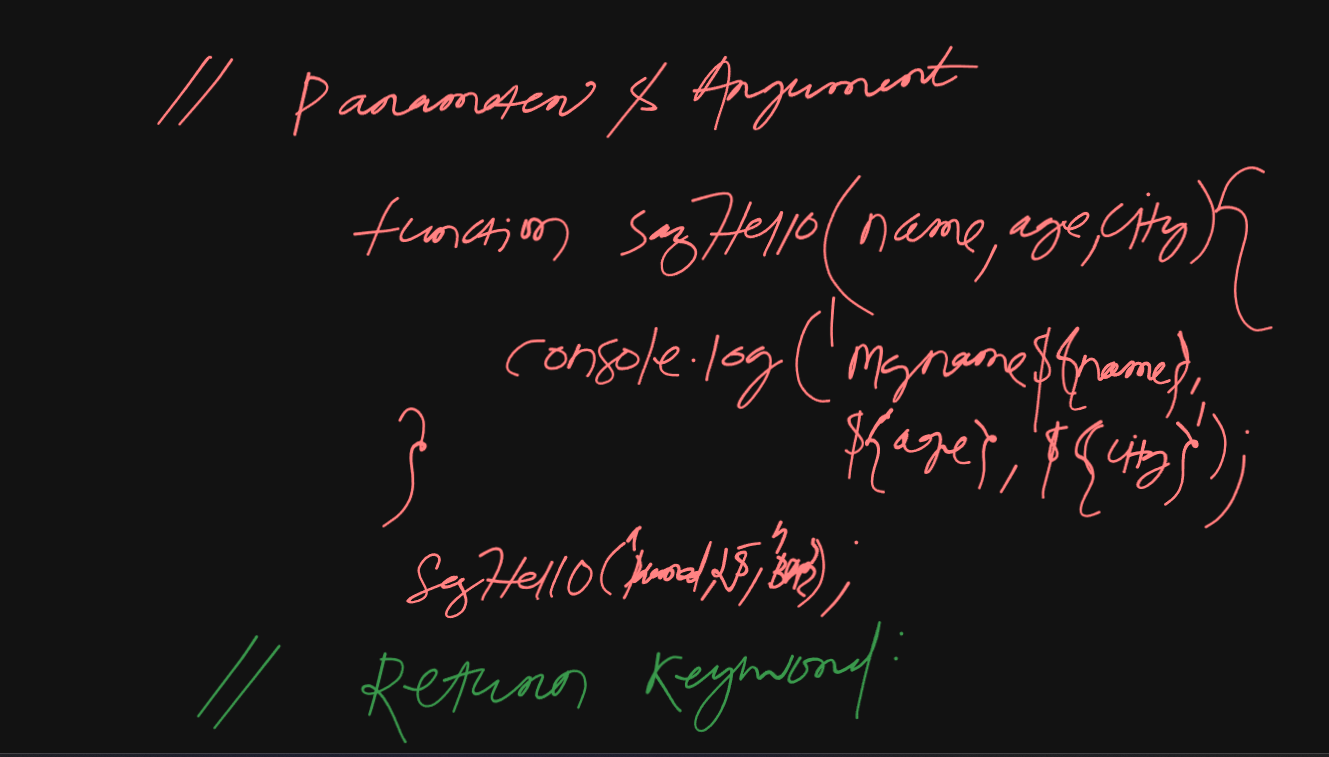 // Parameter & Argument
function sayHello(name, age, city){
console.log('My name ${name},
${age}, ${city}');
}
SayHello(
// Return Keyword: